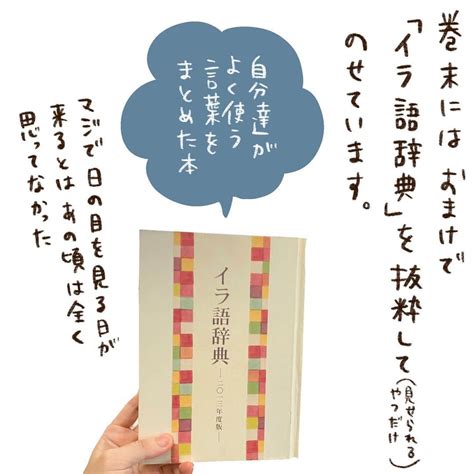 巻末にはおまけで
「イラ語辞典」を抜粋して(見せられる
やつだけ)
のせています。
自分達が
よく使う
言葉を
まとめた本
マジで日の目を見る日が
来るとはあの頃は全く
思ってなかった
イラ語辞典
—二〇一三年度版—